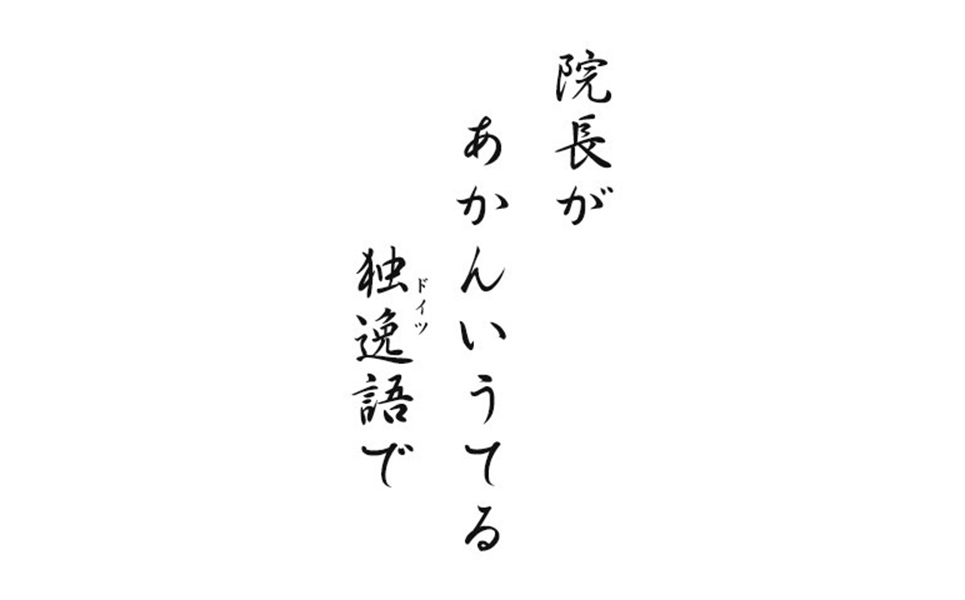 院長が
あかんいうてる
独逸語で
ドイツ